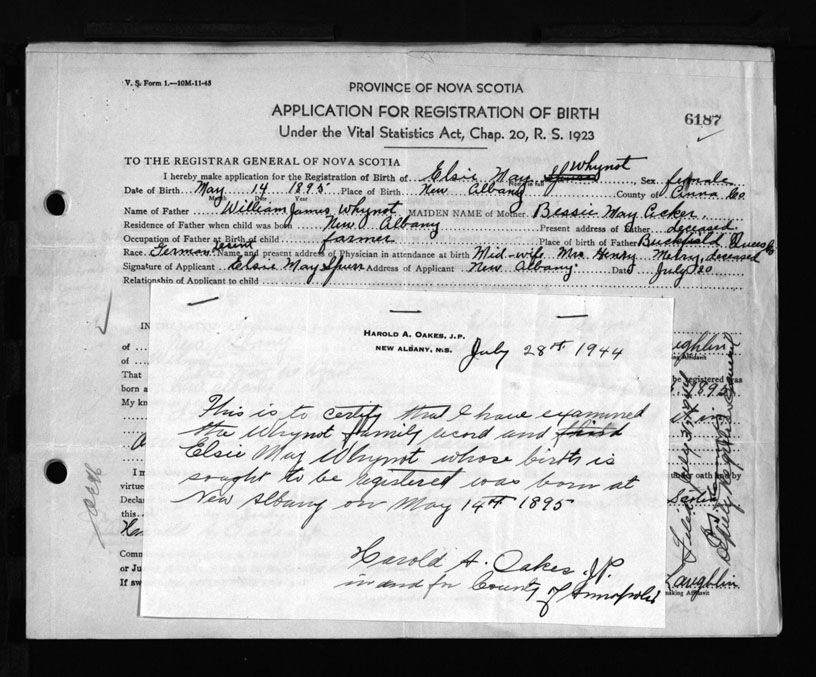 V. S. Form 1.—10M-11-43
PROVINCE OF NOVA SCOTIA
APPLICATION FOR REGISTRATION OF BIRTH
6187
Under the Vital Statistics Act, Chap. 20, R. S. 1923
TO THE REGISTRAR GENERAL OF NOVA SCOTIA
I hereby make application for the Registration of Birth of Elsie May Whynot Sex female
Date of Birth May 14 1895 Place of Birth New Albany County of Anna Co
Month Day Year Name in full
Name of Father William James Whynot MAIDEN NAME of Mother Bessie May Acker.
Residence of Father when child was born New Albany Present address of Father deceased
Occupation of Father at Birth of child farmer Place of Birth of Father Buckfield Queens Co
Race German Descent Name and present address of Physician in attendance at birth Mid-wife Mrs Henry Merry, deceased
Signature of Applicant Elsie May Spurr Address of Applicant New Albany Date July 20
Relationship of Applicant to child
HAROLD A. OAKES, J.P.
NEW ALBANY, N.S.
July 28th 1944
This is to certify that I have examined
the Whynot family record and
Elsie May Whynot whose birth is
sought to be registered was born at
New Albany on May 14th 1895
Harold A. Oakes J.P.
in and for County of Annapolis
IN
of
of
That
born a
My kn
I m
virtue
Declar
this
Har
Comm
or Ju
If aw
ughlin
king Affidavit
be registered was
1895
under oath and by
Laughlin
making Affidavit